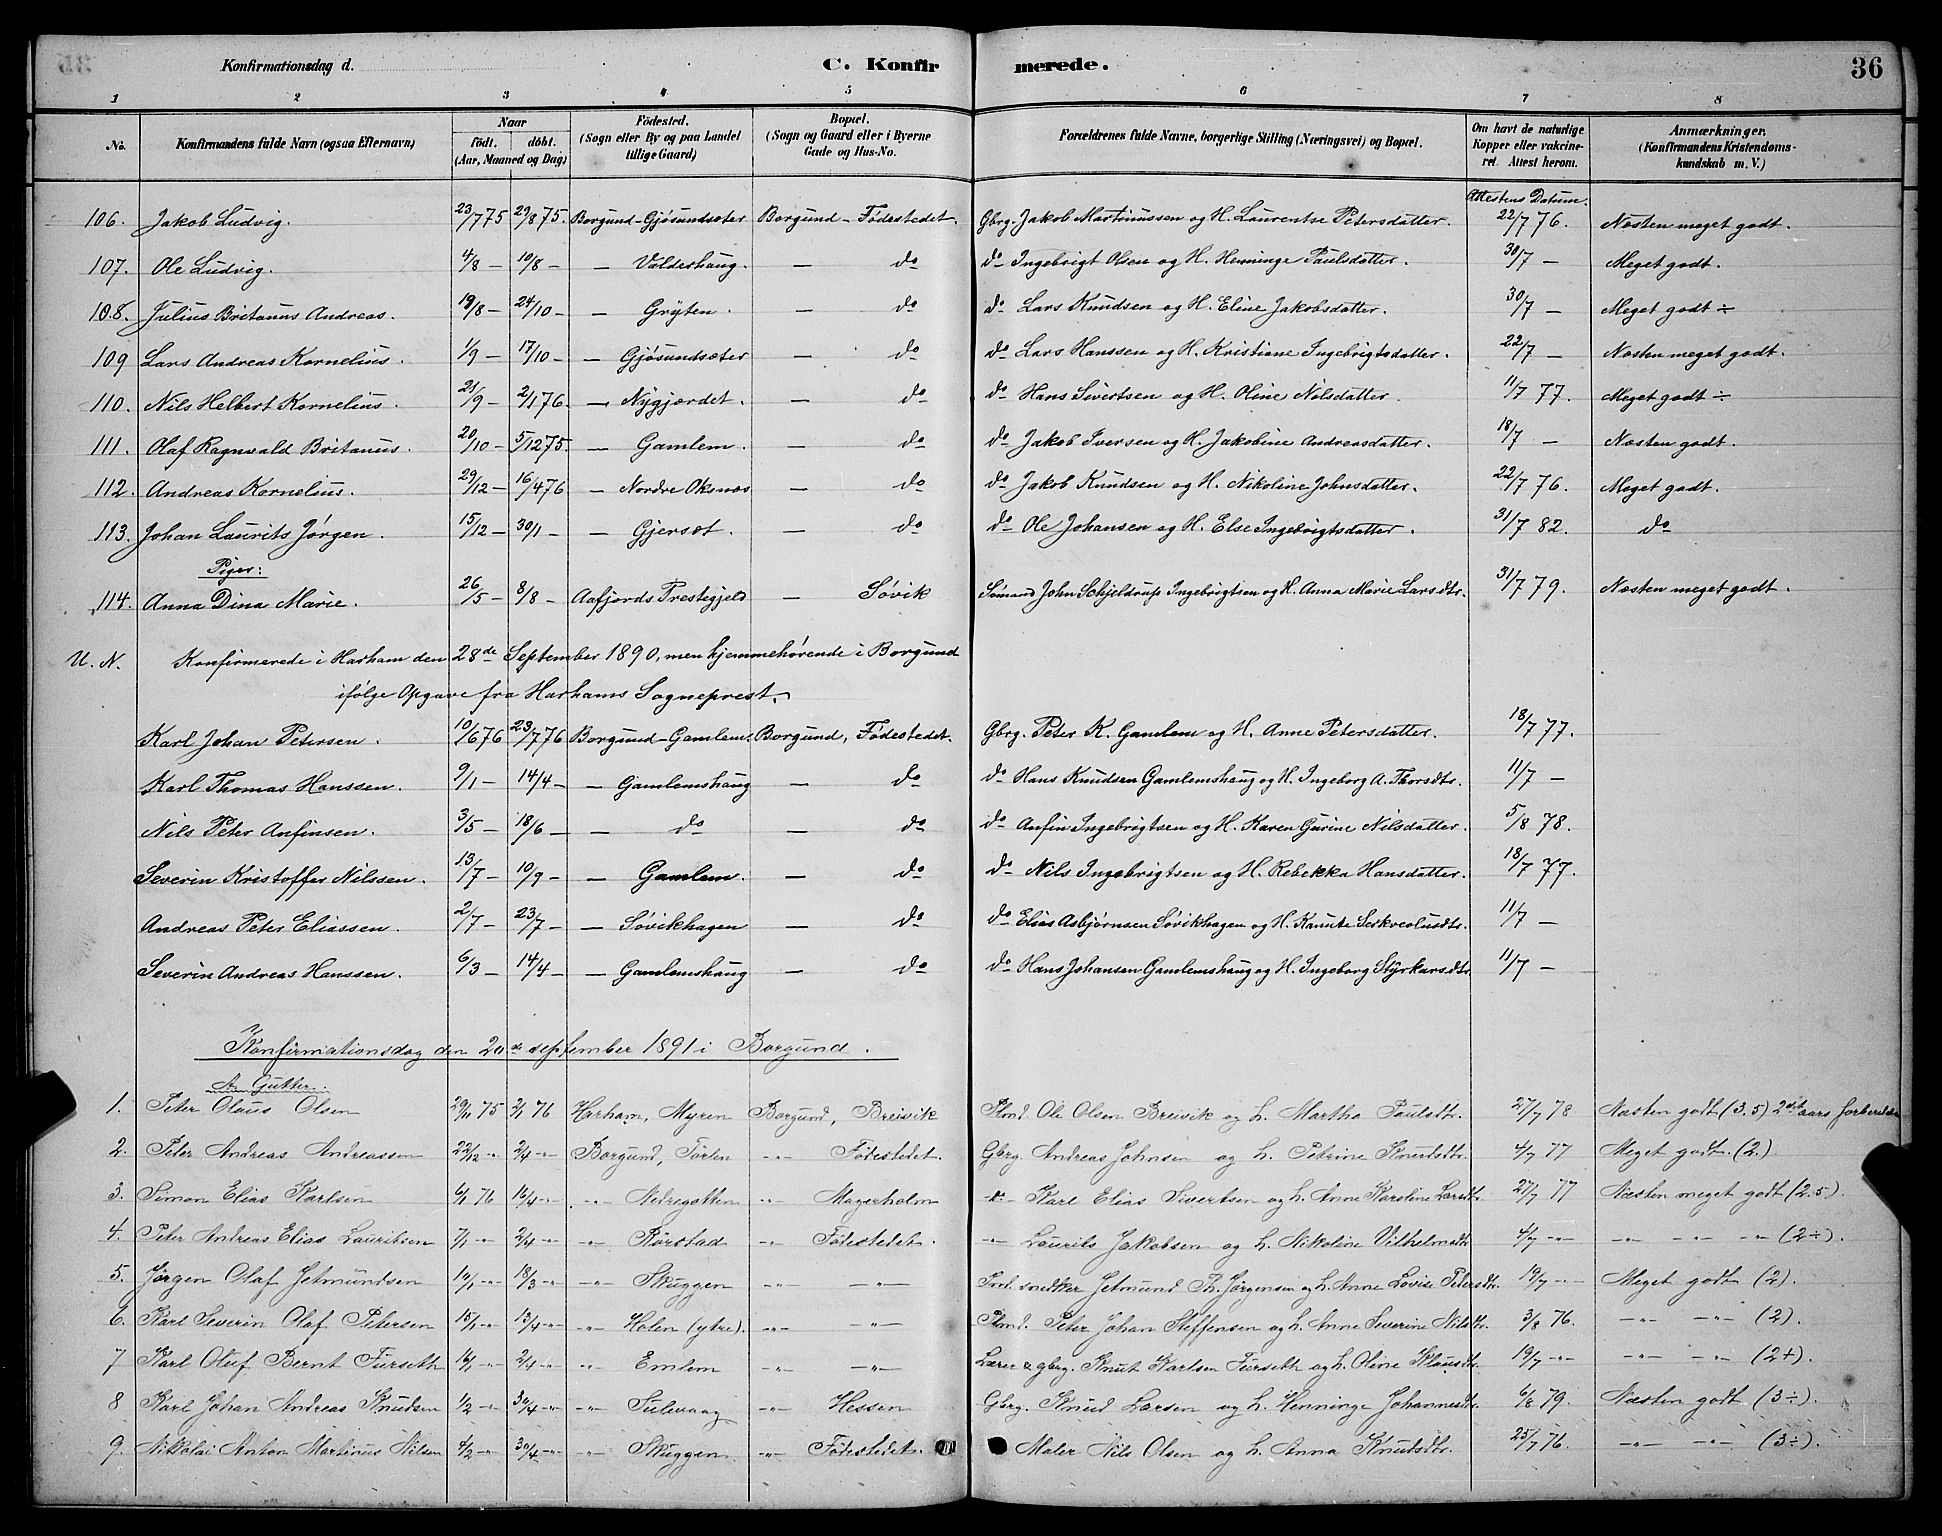 Konfirmationsdag d. C. Konfirmerede. 36
1 2 3 4 5 6 7 8
No. Konfirmandens fulde Navn (ogsaa Efternavn) Naar født. døbt. (Aar, Maaned og Dag) Fødested. (Sogn eller By og paa Landet tillige Gaard) Bopæl. (Sogn og Gaard eller i Byerne Gade og Hus-No. Forældrenes fulde Navne, borgerlige Stilling (Næringsvei) og Bopæl. Om havt de naturlige Kopper eller vakcineret. Attest herom. Anmærkninger. (Konfirmandens Kristendomskundskab m. V.)
Attestens Datum.
106. Jakob Ludvig. 23/7 75 29/8 75. Borgund-Gjøsundsæter Borgund - Fødestedet. Gbrg. Jakob Martinussen og H. Laurentse Petersdatter. 22/7 76. Næsten meget godt.
107. Ole Ludvig. 4/8 — 10/8 — — Valdershaug. — do do Ingebrigt Olsen og H. Henninge Paulsdatter. 30/7 — Meget godt.
108. Julius Britanus Andreas. 19/8 — 24/10 — — Gryten. — do do Lars Knudsen og H. Eline Jakobsdatter. 30/7 — Meget godt ÷
109 Lars Andreas Kornelius. 1/9 — 17/10 — — Gjøsundsæter — do do Lars Hanssen og H. Kristiane Ingebrigtsdatter. 22/7 — Næsten meget godt.
110. Nils Helbert Kornelius. 21/9 — 2/1 76. — Nygjærdet. — do do Hans Sivertsen og H. Oline Nilsdatter. 11/7 77. Meget godt ÷
111. Olaf Ragnvald Britanus. 20/10 — 5/12 75. — Gamlem. — do do Jakob Iversen og H. Jakobine Andreasdatter. 18/7 — Næsten godt.
112. Andreas Kornelius. 29/12 — 16/4 76 — Nordre Oksnæs — do do Jakob Knudsen og H. Nikoline Johnsdatter. 22/7 76. Meget godt.
113. Johan Laurits Jørgen. 15/12 — 30/1 — — Gjersæt. — do do Ole Johansen og H. Else Ingebrigtsdatter. 31/7 82. do
Piger:
114. Anna Dina Marie. 26/5 — 8/8 — Aafjords Prestegjeld — Søvik Sømand John Schjeldrup Ingebrigtsen og H. Anna Marie Larsdtr. 31/7 79. Næsten meget godt.
U. N. Konfirmerede i Harham den 28de September 1890, men hjemmehørende i Borgund
ifølge Opgave fra Harhams Sogneprest.
Karl Johan Petersen. 10/6 76 23/7 76 Borgund-Gamlem. Borgund, Fødestedet. Gbrg. Peter K. Gamlem og H. Anne Petersdatter. 18/7 77.
Karl Thomas Hanssen. 9/1 — 14/4 — — Gamlemshaug — do do Hans Knudsen Gamlemshaug og H. Ingeborg A. Thorsdtr. 11/7 —
Nils Peter Anfinsen. 3/5 — 18/6 — — do — do do Anfin Ingebrigtsen og H. Karen Gurine Nilsdatter. 5/8 78.
Severin Kristoffer Nilssen. 13/7 — 10/9 — — Gamlem. — do do Nils Ingebrigtsen og H. Rebekka Hansdatter. 18/7 77.
Andreas Peter Eliassen. 2/7 — 23/7 — — Søvikhagen — do do Elias Asbjørnsen Søvikhagen og H. Kanute 11/7 —
Severin Andreas Hanssen. 6/3 — 14/4 — — Gamlemshaug — do do Hans Johansen Gamlemshaug og H. Ingeborg Styrkarsdtr. 11/7 —
Konfirmationsdag den 20de september 1891 i Borgund.
A. Gutter.
1. Peter Olaus Olsen 29/11 75 2/1 76 Harham, Myren Borgund, Breivik Plmd. Ole Olsen Breivik og h. Martha Paulsdtr. 27/7 78 Næsten godt (3.5) 2det aars forberedelse
2. Peter Andreas Andreassen 22/12 -"- 2/4 -"- Borgund, Tørlen -"- Fødestedet. Gbrg. Andreas Johnsen og h. Petrine Knudsdtr. 4/7 77 Meget godt. (2.)
3. Simon Elias Karlsen 6/1 76 16/4 -"- -"- Nedregotten -"- Magerholm do Karl Elias Sivertsen og h. Anne Karoline Larsdtr. 27/7 77 Næsten meget godt (2.5).
4. Peter Andreas Elias Lauritsen 7/1 -"- 2/4 -"- -"- Rørstad -"- Fødestedet. -"- Laurits Jakobsen og h. Nikoline Vilhelmsdtr. 4/7 -"- -"- -"- -"- (2÷).
5. Jørgen Olaf Jetmundsen 10/1 -"- 18/3 -"- -"- Skuggen -"- -"- Snedker Jetmund Th. Jørgensen og h. Anne Lovise Petersdtr. 19/7 -"- Meget godt (2).
6. Karl Severin Olaf Petersen 15/1 -"- 13/4 -"- -"- Holen (ytre). -"- -"- Plmd. Peter Johan Steffensen og h. Anne Severine Nilsdtr. 3/8 76. -"- -"- (2).
7 Karl Oluf Bernt Furseth 16/1 -"- 2/4 -"- -"- Emlem -"- -"- Lærer & gbrg. Knut Karlsen Furseth og h. Oline Klausdtr. 19/7 -"- -"- -"- (2+).
8 Karl Johan Andreas Knudsen 1/2 -"- 30/4 -"- -"- Tulevaag -"- Hessen Gbrg. Knud Larsen og h. Henninge Johannesdtr. 6/8 79. Næsten godt (3÷).
9. Nikolai Anton Martinus Nilsen 4/2 -"- 30/4 -"- -"- Skuggen -"- Fødestedet. Maler Nils Olsen og h. Anna Knudsdtr. 25/7 76. -"- -"- (3÷).